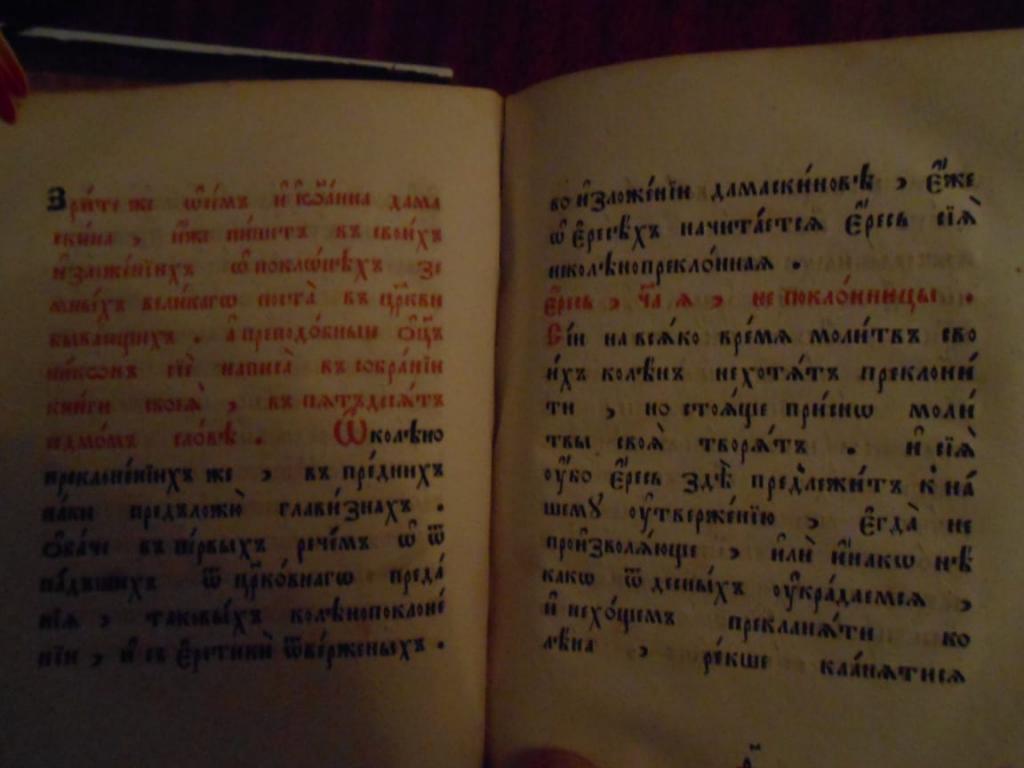 Зри́те же ѡ҆се́мъ и҆ і҆ѡа́нна дама
ски́на , и҆́же пи́шетъ въ свои́хъ
и҆зложе́нїихъ ѡ҆ поклѡ́нѣхъ зе
мны́хъ вели́кагѡ поста̀ въ цр҃кви
быва́ющихъ . а҆ преподо́бныи ѻ҆ц҃ъ
ни́кѡнъ сїѐ написа̀ въ собра́нїи
кни́ги своеѧ̀ , въ пѧтъдесѧ́тъ
седмо́мъ сло́вѣ . Ѿ колѣ́но
преклоне́нїихъ же , въ пре́днихъ
па́ки предъложю̀ глави́знахъ .
Ѻ҆ба́че въ пе́рвыхъ рече́мъ ѡ҆ ѿ
па́дъшихъ ѿ цр҃ко́внагѡ преда́
нїѧ , таковы́хъ колѣ́нопоклоне́
нїи , и҆ съ є҆рети́ки ѿве́рженыхъ .
во и҆зложе́нїи дамаски́новѣ , є҆́же
ѡ҆ є҆́ресѣхъ начита́етсѧ є҆́ресь сїѧ̀
николѣ́нопрекло́нная .
є҆́ресь , ч҃а ѧ , непокло́нницы .
Сі́и на всѧ́ко вре́мѧ моли́твъ сво
и́хъ колѣ́нъ нехотѧ́тъ преклони́
ти , но стоѧ́ще при́снѡ моли́
твы своѧ̀ творѧ́тъ . и҆ сїѧ̀
оу҆́бо є҆́ресь здѣ̀ предлежи́тъ к̾ на́
шемꙋ оу҆твержє́нїю , є҆гда̀ не
произволѧ́юще , и҆лѝ и҆́накѡ нѣ́
какѡ ѿ десны́хъ оу҆кра́даемсѧ ,
и҆ нехо́щемъ прекланѧ́ти ко
лѣ́на , ре́кше кла́нѧтисѧ